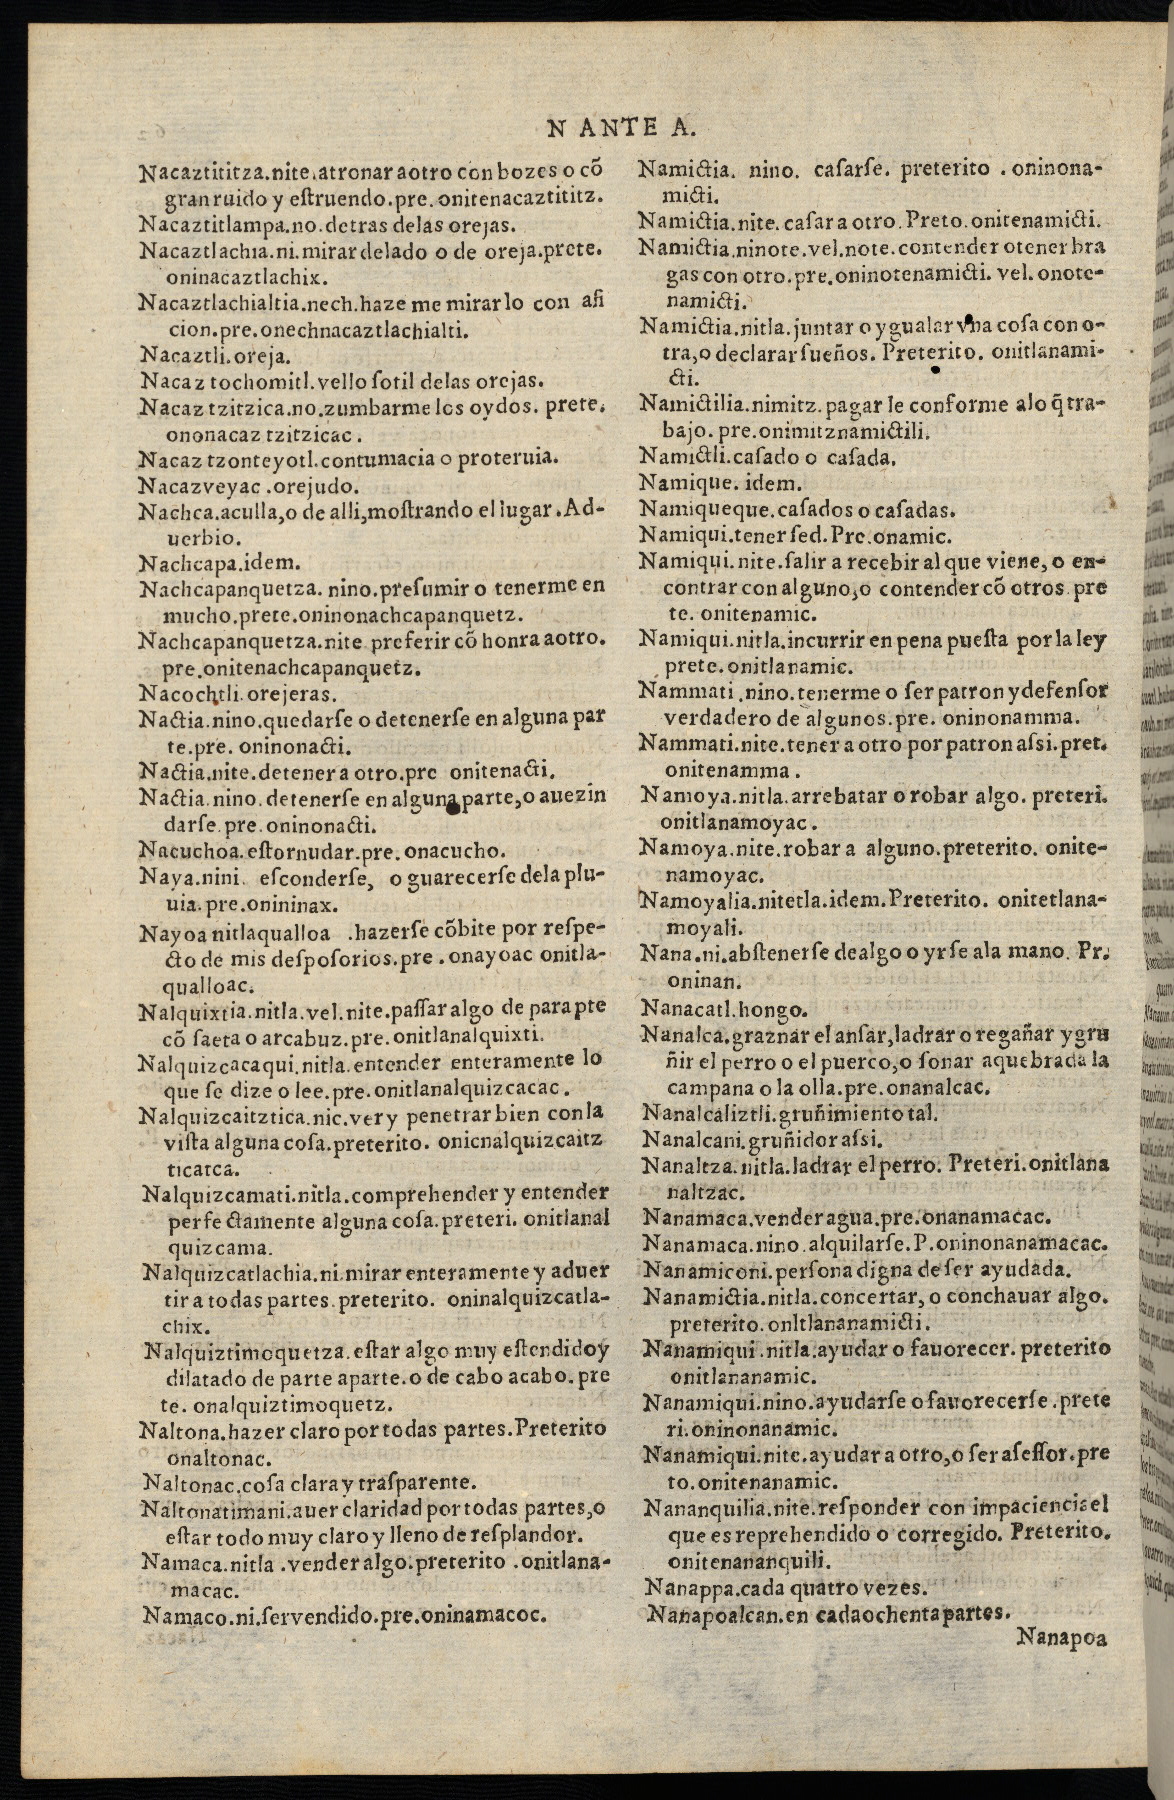 N ANTE A.
Nacaztititza.nite.atronar aotro con bozes o cõ
gran ruido y eſtruendo.pre.onitenacaztititz.
Nacaztitlampa.no.detras delas orejas.
Nacaztlachia.ni.mirar delado o de oreja.prete.
oninacaztlachix.
Nacaztlachialtia.nech.haze me mirarlo con afi
cion.pre.onechnacaztlachialti.
Nacaztli.oreja.
Nacaz tochomitl.vello ſotil delas orejas.
Nacaz tzitzica.no.zumbarme los oydos. prete.
ononacaz tzitzicac.
Nacaz tzonteyotl.contumacia o proteruia.
Nacazveyac.orejudo.
Nachca.aculla,o de alli,moſtrando el lugar.Ad-
uerbio.
Nachcapa.idem.
Nachcapanquetza. nino.preſumir o tenerme en
mucho.prete.oninonachcapanquetz.
Nachcapanquetza.nite preferir cõ honra aotro.
pre.onitenachcapanquetz.
Nacochtli.orejeras.
Nactia.nino.quedarſe o detenerſe en alguna par
te.pre. oninonacti.
Nactia.nite.detener a otro.pre onitenacti.
Nactia.nino.detenerſe en alguna parte,o auezin
darſe.pre.oninonacti.
Nacuchoa.eſtornudar.pre.onacucho.
Naya.nini. eſconderſe, o guarecerſe dela plu-
uia.pre.onininax.
Nayoa nitlaqualloa .hazerſe cõbite por reſpe-
cto de mis deſpoſorios.pre.onayoac onitla-
qualloac.
Nalquixtia.nitla.vel.nite.paſſar algo de parapte
cõ ſaeta o arcabuz.pre.onitlanalquixti.
Nalquizcacaqui.nitla.entender enteramente lo
que ſe dize o lee.pre.onitlanalquizcacac.
Nalquizcaitztica.nic.ver y penetrar bien con la
viſta alguna coſa.preterito. onicnalquizcaitz
ticatca.
Nalquizcamati.nitla.comprehender y entender
perfectamente alguna coſa.preteri. onitlanal
quizcama.
Nalquizcatlachia.ni.mirar enteramente y aduer
tir a todas partes.preterito. oninalquizcatla-
chix.
Nalquiztimoquetza.eſtar algo muy eſtendido y
dilatado de parte aparte.o de cabo acabo.pre
te. onalquiztimoquetz.
Naltona.hazer claro por todas partes.Preterito
onaltonac.
Naltonac.coſa clara y traſparente.
Naltonatimani.auer claridad por todas partes,o
eſtar todo muy claro y lleno de reſplandor.
Namaca.nitla.vender algo.preterito.onitlana-
macac.
Namaco.ni.ſer vendido.pre.oninamacoc.
Namictia. nino. caſarſe. preterito . oninona-
micti.
Namictia.nite.caſar a otro.Preto.onitenamicti.
Namictia.ninote.vel.note.contender o tener bra
gas con otro.pre.oninotenamicti. vel. onote-
namicti.
Namictia.nitla.juntar o ygualar vna coſa con o-
tra,o declarar ſueños. Preterito. onitlanami-
cti.
Namictilia.nimitz.pagar le conforme alo q̃ tra-
bajo.pre.onimitznamictili.
Namictli.caſado o caſada.
Namique. idem.
Namiqueque.caſados o caſadas.
Namiqui.tener ſed.Pre.onamic.
Namiqui.nite.ſalir a recebir al que viene, o en-
contrar con alguno,o contender cõ otros.pre
te. onitenamic.
Namiqui.nitla.incurrir en pena pueſta por la ley
prete.onitlanamic.
Nammati.nino.tenerme o ſer patron y defenſor
verdadero de algunos.pre. oninonamma.
Nammati.nite.tener a otro por patron aſsi.pret.
onitenamma.
Namoya.nitla.arrebatar o robar algo. preteri.
onitlanamoyac.
Namoya.nite.robar a alguno.preterito. onite-
namoyac.
Namoyalia.nitetla.idem.Preterito. onitetlana-
moyali.
Nana.ni.abſtenerſe dealgo o yrſe ala mano. Pr.
oninan.
Nanacatl.hongo.
Nanalca.graznar el anſar,ladrar o regañar y gru
ñir el perro o el puerco,o ſonar aquebrada la
campana o la olla.pre.onanalcac.
Nanalcaliztli.gruñimiento tal.
Nanalcani.gruñidor aſsi.
Nanaltza.nitla.ladrar el perro. Preteri.onitlana
naltzac.
Nanamaca.vender agua.pre.onanamacac.
Nanamaca.nino.alquilarſe.P.oninonanamacac.
Nanamiconi.perſona digna de ſer ayudada.
Nanamictia.nitla.concertar, o conchauar algo.
preterito.onltlananamicti.
Nanamiqui.nitla.ayudar o fauorecer. preterito
onitlananamic.
Nanamiqui.nino.ayudarſe o fauorecerſe.prete
ri.oninonanamic.
Nanamiqui.nite.ayudar a otro,o ſer aſeſſor.pre
to.onitenanamic.
Nananquilia.nite.reſponder con impaciencia el
que es reprehendido o corregido. Preterito.
onitenananquili.
Nanappa.cada quatro vezes.
Nanapoalcan.en cada ochenta partes.
Nanapoa